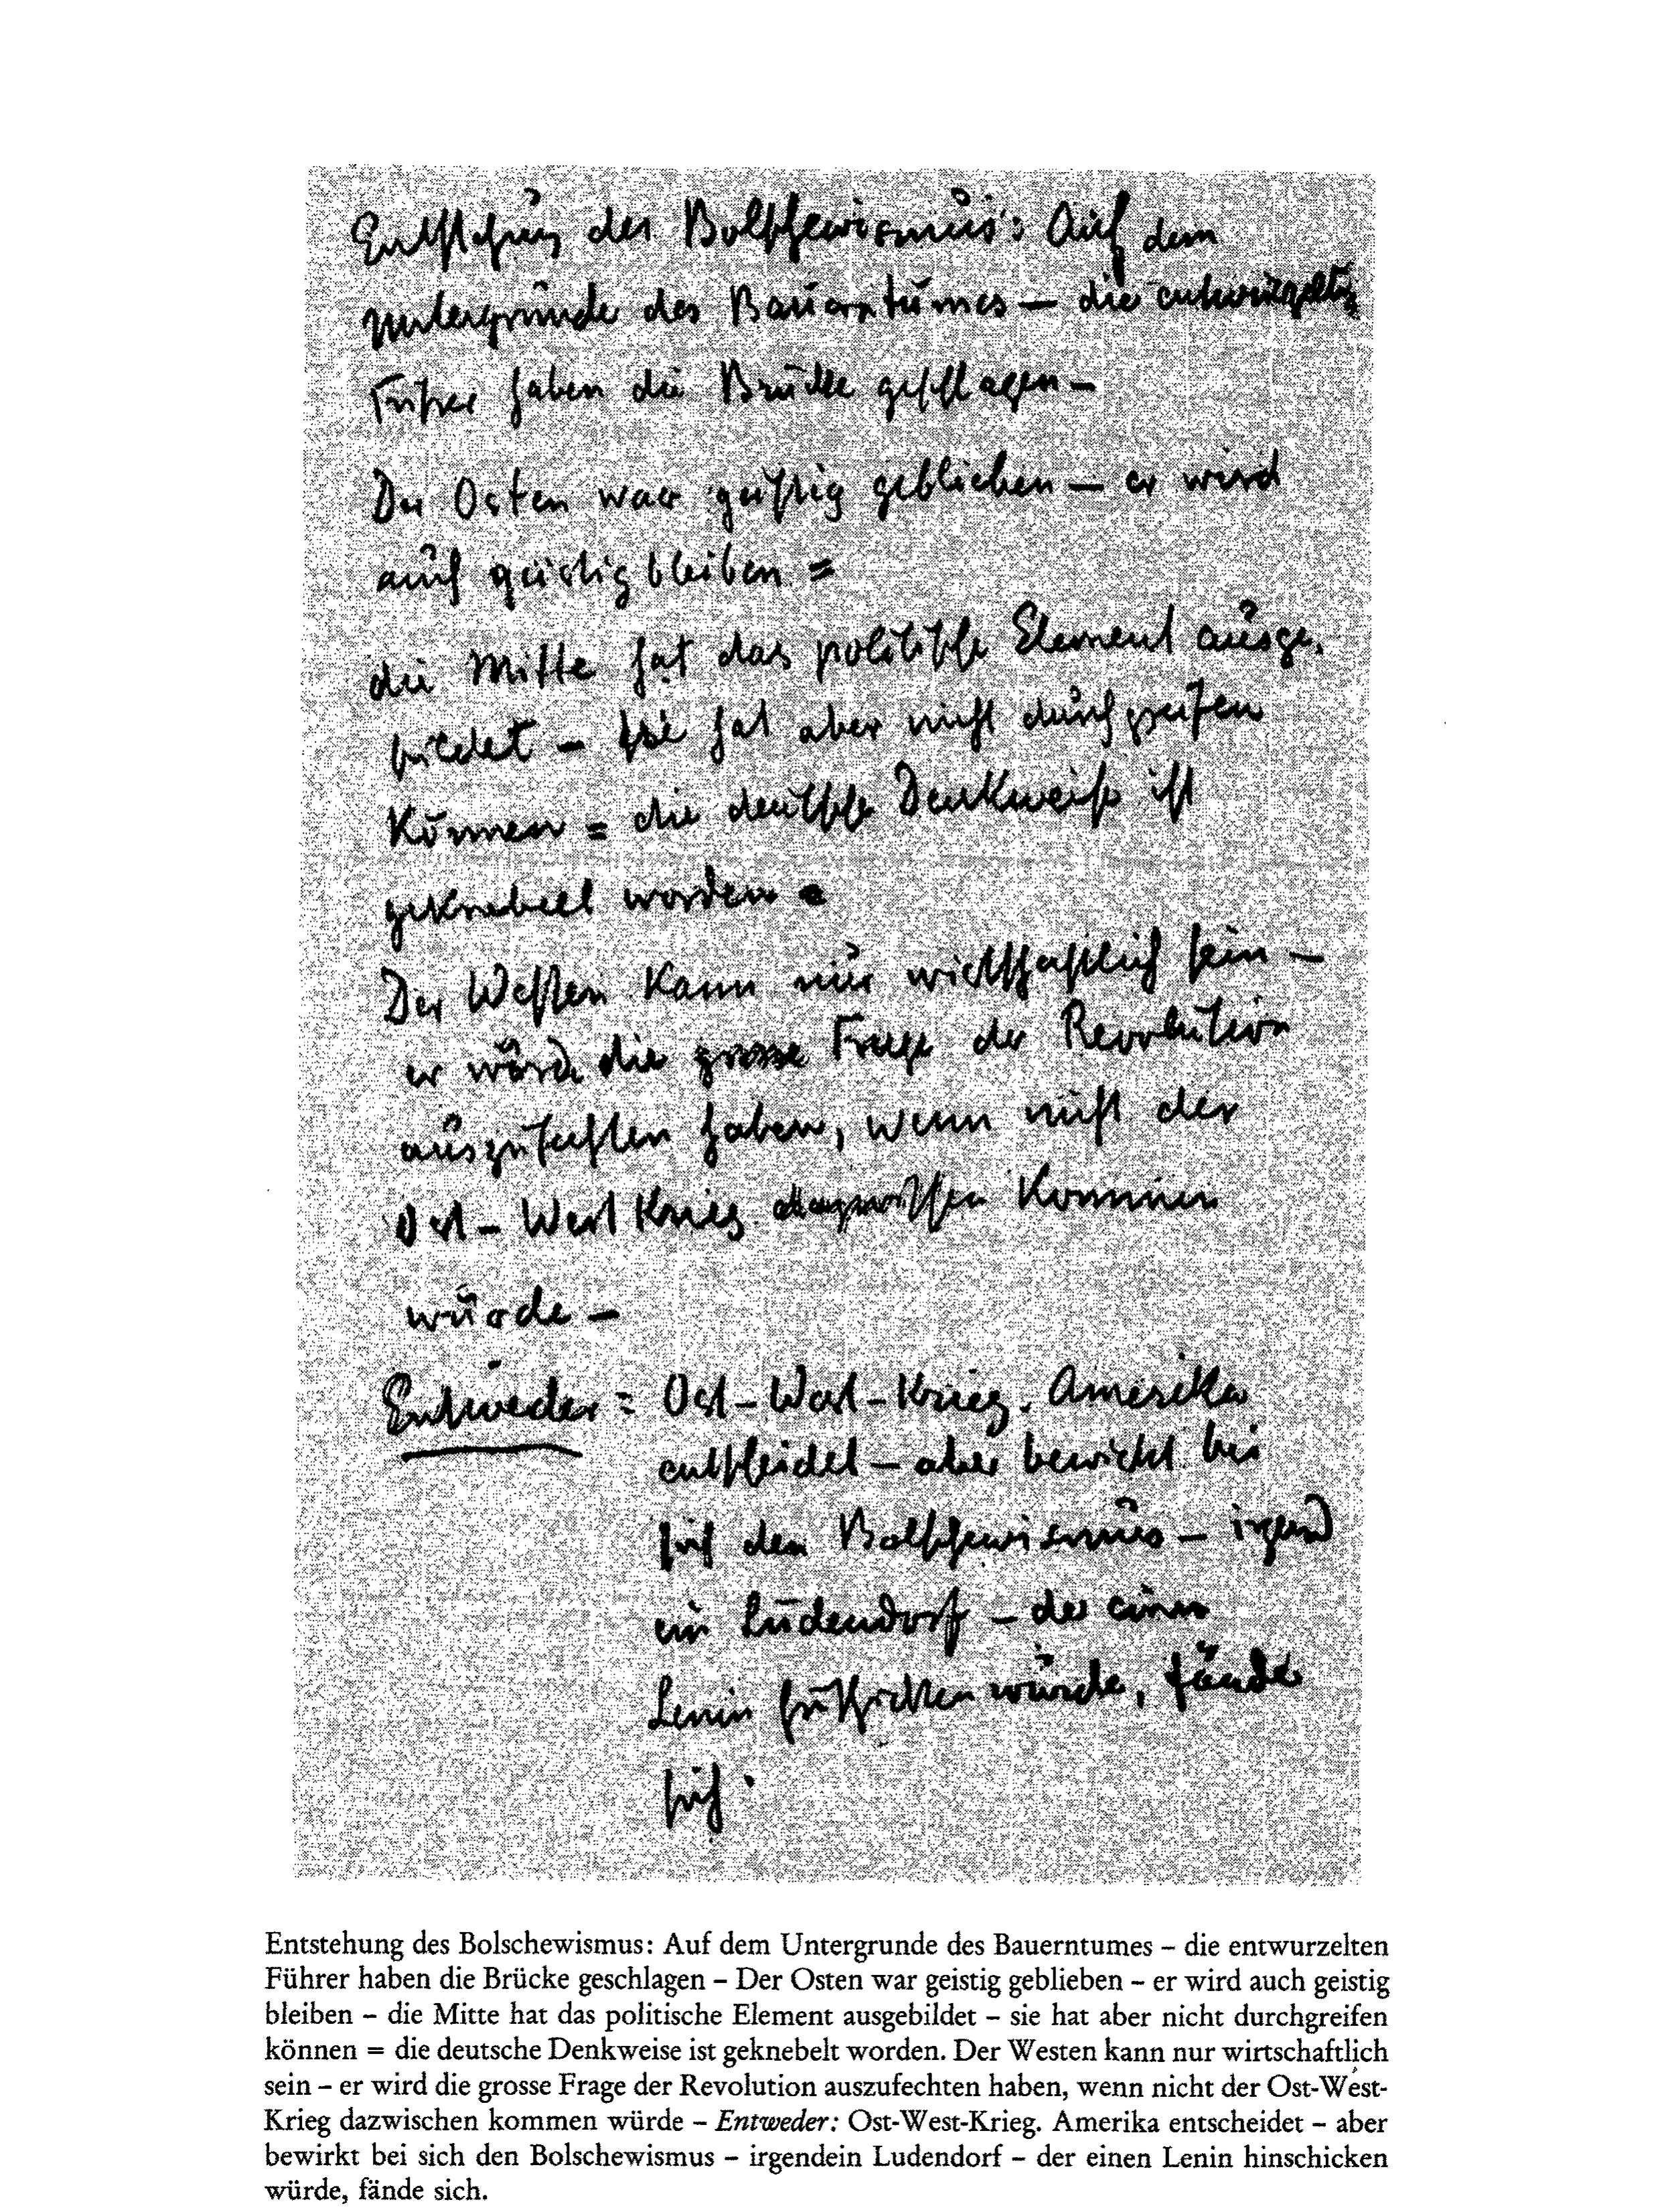 Entstehung des Bolschewismus: Auf dem
Untergrunde des Bauerntumes – die entwurzelten
Führer haben die Brücke geschlagen –
Der Osten war geistig geblieben – er wird
auch geistig bleiben =
die Mitte hat das politische Element ausge-
bildet – sie hat aber nicht durchgreifen
können = die deutsche Denkweise ist
geknebelt worden.
Der Westen kann nur wirtschaftlich sein –
er wird die grosse Frage der Revolution
auszufechten haben, wenn nicht der
Ost-West Krieg dazwischen kommen
würde –
Entweder: Ost-West-Krieg. Amerika
entscheidet – aber bewirkt bei
sich den Bolschewismus – irgend
ein Ludendorf – der einen
Lenin hinschicken würde, fände
sich.
Entstehung des Bolschewismus: Auf dem Untergrunde des Bauerntumes – die entwurzelten
Führer haben die Brücke geschlagen – Der Osten war geistig geblieben – er wird auch geistig
bleiben – die Mitte hat das politische Element ausgebildet – sie hat aber nicht durchgreifen
können = die deutsche Denkweise ist geknebelt worden. Der Westen kann nur wirtschaftlich
sein – er wird die grosse Frage der Revolution auszufechten haben, wenn nicht der Ost-West-
Krieg dazwischen kommen würde – Entweder: Ost-West-Krieg. Amerika entscheidet – aber
bewirkt bei sich den Bolschewismus – irgendein Ludendorf – der einen Lenin hinschicken
würde, fände sich.